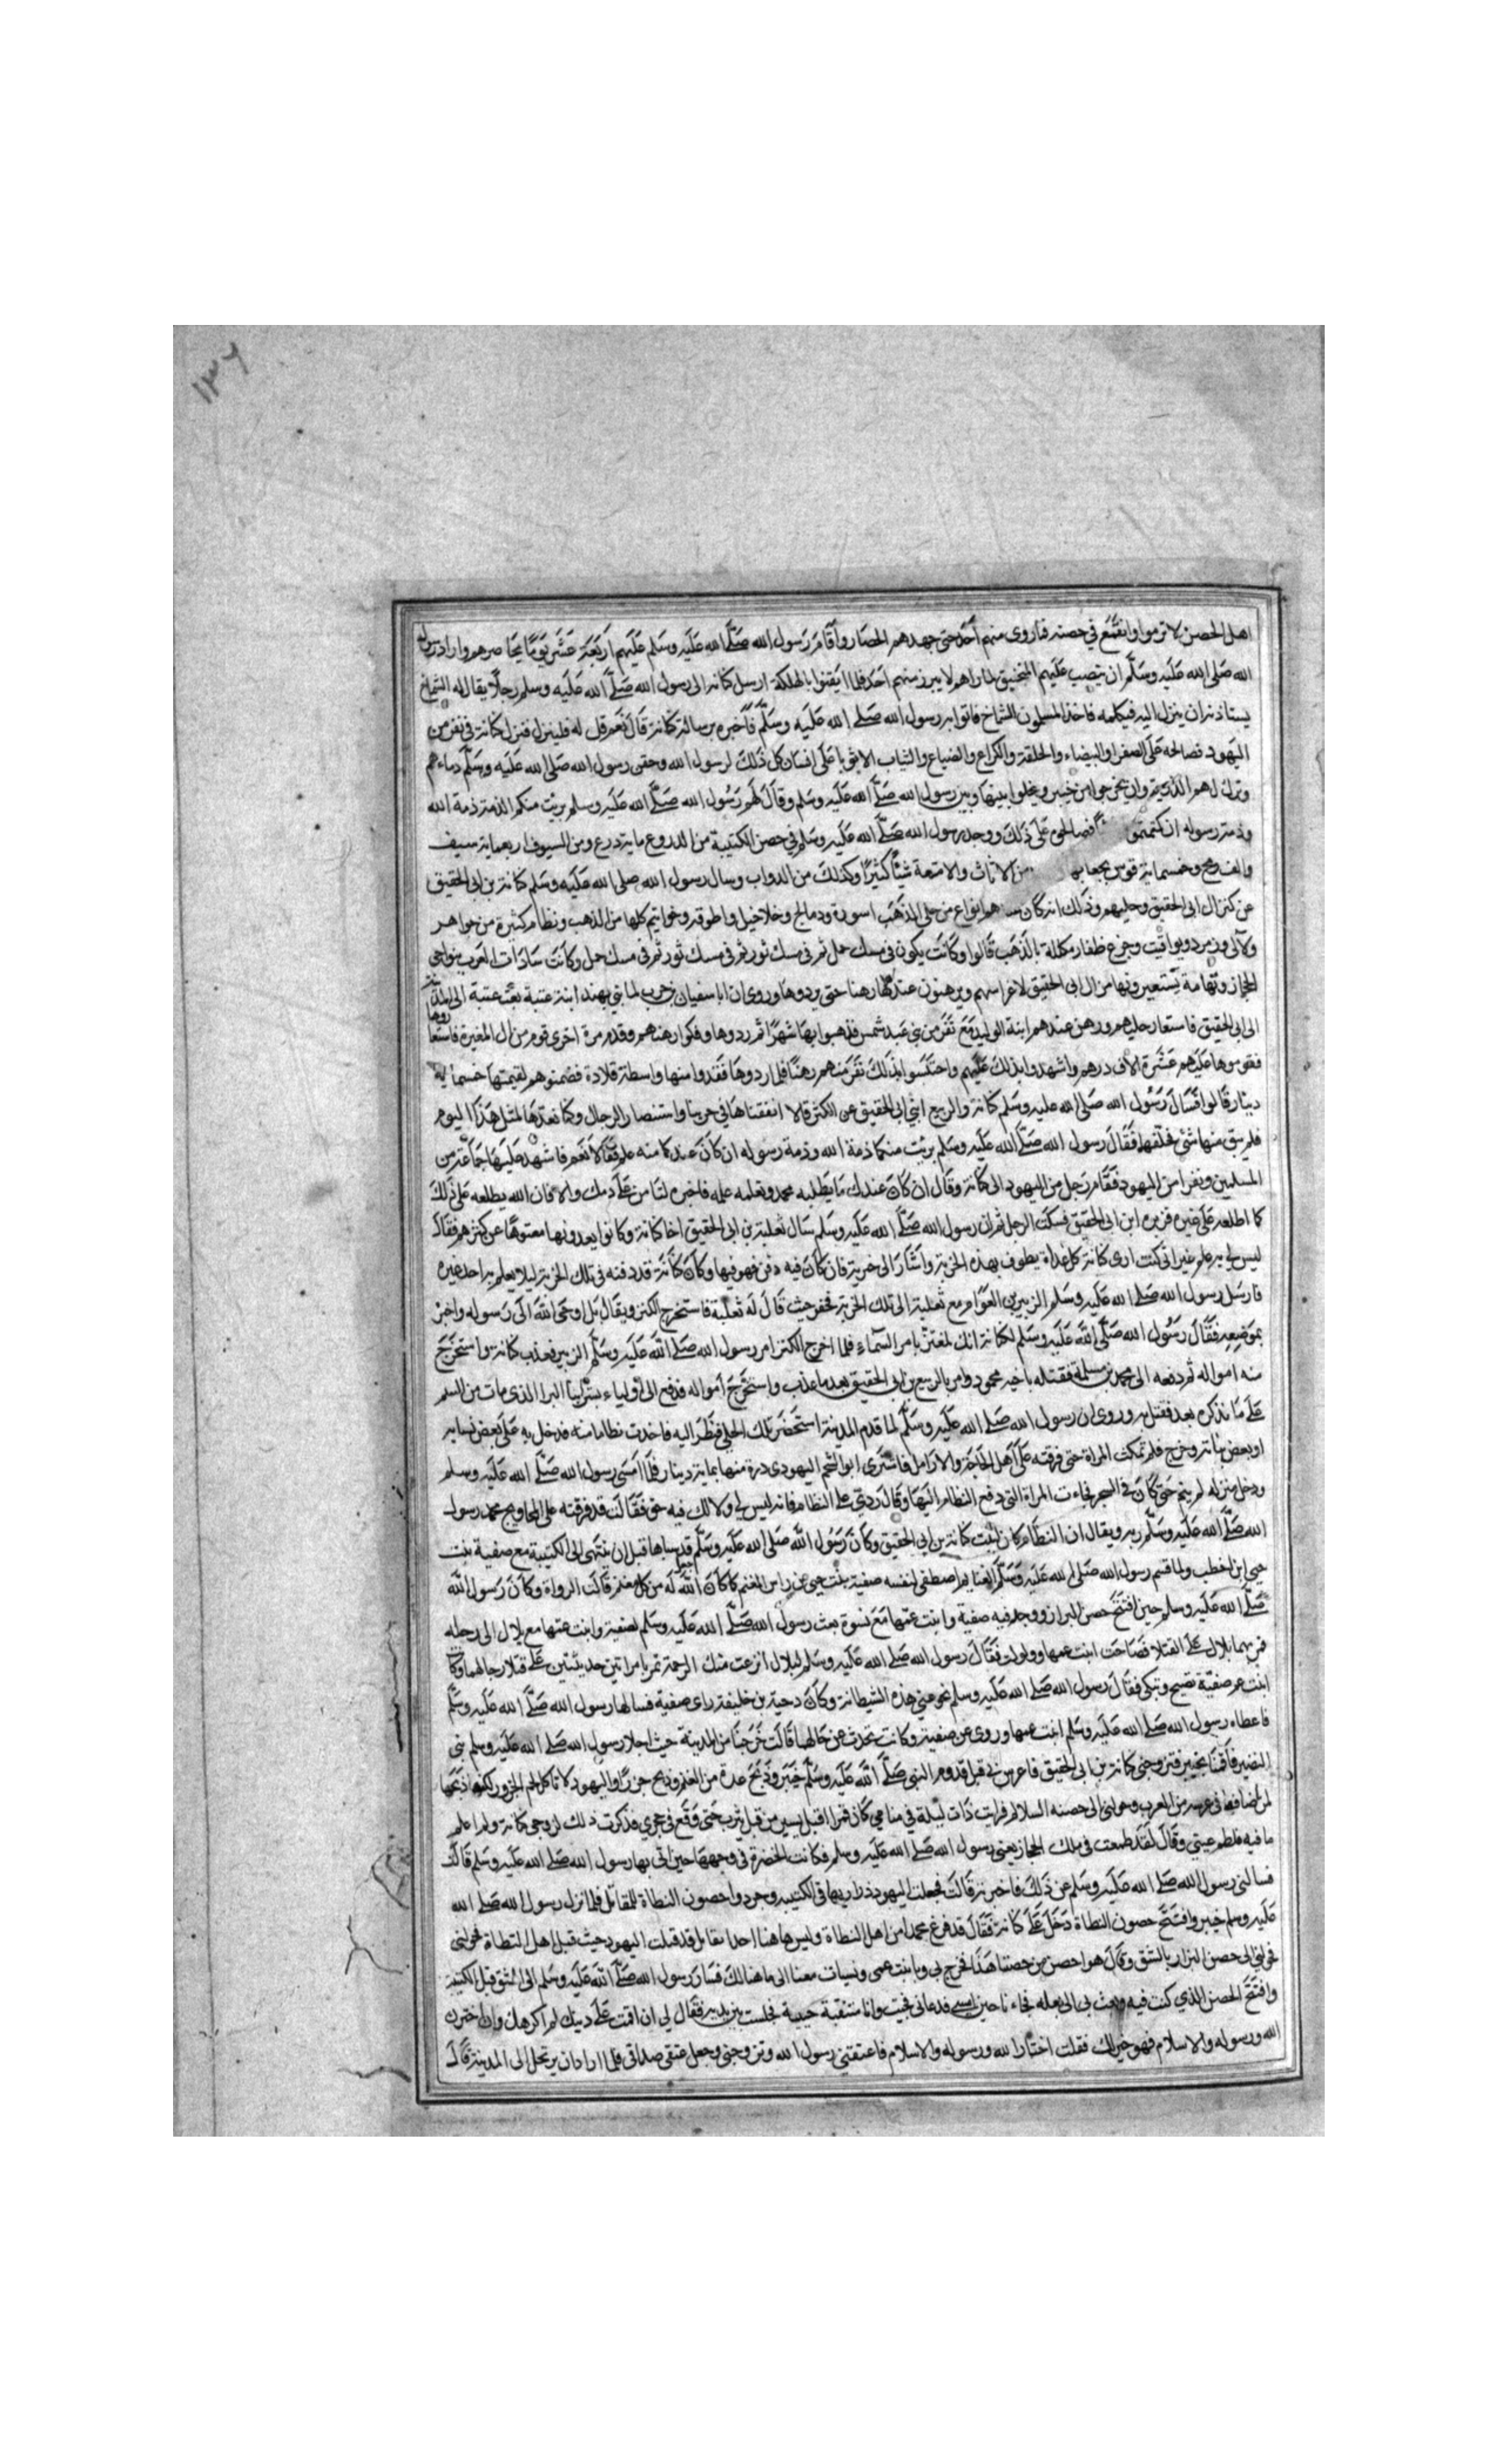 ١٣٦
اهل الحصن لا ترموا وانقنع في حصنه فما روى منهم أحد حتى جهدهم الحصار وأقام رسول الله صلى الله عليه وسلم عليهم اربعة عشر يوما يحاصرهم واراد رسول
الله صلى الله عليه وسلم ان ينصب عليهم المنجنيق لما راهم لا يبرز منهم احد فلما ايقنوا بالهلكة ارسل كنانه الى رسول الله صلى الله عليه وسلم رجلا يقال له الشماخ
يستاذنه ان ينزل اليه فيكلمه فاخذ المسلمون الشماخ فاتوا به رسول الله صلى الله عليه وسلم فاخبره برسالة كنانة قال نعم قل له فلينزل فنزل كنانة في نفر من
اليهود فصالحه على الصفرا والبيضاء والحلقة والكراع والضياع والثياب الا ثوبا على انسان كل ذلك لرسول الله وحقن رسول الله صلى الله عليه وسلم دماءهم
وترك لهم الذرية وان يخرجوا من خيبر ويخلوا بينها وبين رسول الله صلى الله عليه وسلم وقال لهم رسول الله صلى الله عليه وسلم بريت منكم الذمة ذمة الله
وذمة رسوله ان كتمتمو فصالحوه على ذلك ووجد رسول الله صلى الله عليه وسلم في حصن الكتيبة من الدروع ماية درع ومن السيوف اربعماية سيف
والف رمح وخمسماية قوس بجعابها من الاثاث والامتعة شيئا كثيرا وكذلك من الدواب وسال رسول الله صلى الله عليه وسلم كنانة بن ابي الحقيق
عن كنز ال ابي الحقيق وحليهم وذلك انه كان هو انواع من حلى الذهب اسورة ودمالج وخلاخيل واطوقه وخواتيم كلها من الذهب ونظام كثيرة من جواهر
ولآلى وزمرد ويواقيت وجزع ظفار مكللة بالذهب قالوا وكانت يكون في مسك حمل ثم في مسك ثور ثم في مسك ثور ثم في مسك حمل وكانت سادات العرب بنواحي
الحجاز وتهامة يستعيرونها من ال ابي الحقيق لاعراسهم ويرهنون عندهم رهنا حتى يردوها وروى ان ابا سفيان بن حرب لما بني بهند ابنة عتبة بعث عتبة الى المدينة
الى ابي الحقيق فاستعار حليهم ورهن عندهم ابنة الوليد مع نفر من بني عبد شمس فذهبوا بها شهرا ثم ردوها وفكوا رهنهم وقدم مرة اخرى قوم من ال المغيرة فاستعاروها
فقوموها عليهم عشرة الاف درهم واشهدوا بذلك عليهم واحتبسوا بذلك نفر منهم رهنا فلما ردوها فقدوا منها واسطة قلادة فضمنوهم لقيمتها خمسمائه
دينار قالوا فسال رسول الله صلى الله عليه وسلم كنانة والربيع ابني ابي الحقيق عن الكنز قالا انفقناها في حربنا واستنصار الرجال وكنا نعدها لمثل هذا اليوم
فلم يبق منها شئ فقال رسول الله صلى الله عليه وسلم بريت منكما ذمة الله وذمة رسوله ان كان عندكما منه علم فقالا نعم فاشهد عليهما جماعة من
المسلمين ونفرا من اليهود فقام رجل من اليهود الى كنانة وقال ان كان عندك ما يطلبه محمد وتعلمه علمه فاخبره لتامن على دمك والا فان الله يطلعه على ذلك
كما اطلعه على غيره فزبره ابن ابي الحقيق فسكت الرجل ثم ان رسول الله صلى الله عليه وسلم سال ثعلبة بن ابي الحقيق اخا كنانة وكانوا يعدونها معتوها عن كنزهم فقال
ليس لي به علم غير اني كنت ارى كنانة كل غداة يطوف بهذه الخربة واشار الى خربة فان كان فيه دفن فهو فيها وكان كنانة قد دفنه في تلك الخربة ليلا يعلم به احد غيره
فارسل رسول الله صلى الله عليه وسلم الزبير بن العوام مع ثعلبة الى تلك الخربة فحفر حيث قال له ثعلبة فاستخرج الكنز ويقال بل اوحى الله الى رسوله واخبره
بموضعه فقال رسول الله صلى الله عليه وسلم لكنانة انك لمغتر بامر السماء فلما اخرج الكنز امر رسول الله صلى الله عليه وسلم الزبير فعذب كنانة واستخرج
منه امواله ثم دفعه الى محمد بن مسلمة فقتله باخيه محمود وامر بالربيع بن ابي الحقيق بعد ما عذب واستخرج امواله فدفع الى اولياء بشر ابن البرا الذي مات من السم
على ما نذكره بعد فقتل به وروى ان رسول الله صلى الله عليه وسلم لما قدم المدينة استحضر تلك الحلي فنظر اليه فاخذت نظاما منه فدخل به على بعض نسايه
او بعض بناته وخرج فلم تمكث المراة حتى فرقته على أهل الحاجة والارامل فاشترى ابو الشحم اليهودى درة منها بماية دينار فلما امسى رسول الله صلى الله عليه وسلم
ودخل منزله لم ينم حتى كان في السحر فجاءت المراة التي دفع النظام اليها وقال ردي على النظام فانه ليس لي ولا لك فيه حق فقالت قد فرقته على المحاويج فحمد رسول
الله صلى الله عليه وسلم ربه ويقال ان النظام كان لبنت كنانة بن ابي الحقيق وكان رسول الله صلى الله عليه وسلم قد سباها قبل ان ينتهى الى الكتيبة مع صفية بنت
حيي ابن اخطب ولما قسم رسول الله صلى الله عليه وسلم الغنايم اصطفى لنفسه صفية بنت حيي من راس المغنم كما كان الله له من كل مغنم قالت الرواة وكان رسول الله
صلى الله عليه وسلم حين افتتح حصن البراز ووجد فيه صفية وابنت عمها مع نسوة بعث رسول الله صلى الله عليه وسلم بصفية وابنت عمها مع بلال الى رحله
فمر بهما بلال على القتلا فصاحت ابنت عمها وولولت فقال رسول الله صلى الله عليه وسلم لبلال انزعت منك الرحمة تمر بامراتين حديثتين على قتلا رجالهما وكان
ابنت عم صفية تصيح وتبكي فقال رسول الله صلى الله عليه وسلم نحو عني هذه الشيطانة وكان دحية بن خليفة راى صفية فسالها رسول الله صلى الله عليه وسلم
فاعطاه رسول الله صلى الله عليه وسلم ابنت عمها وروى عن صفية وكانت تحدث عن حالها قالت خرجنا من المدينة حيث اجلا رسول الله صلى الله عليه وسلم بني
النضير فاقمنا بخيبر فتزوجني كنانة بن ابي الحقيق فاعرس بي قبل قدوم النبي صلى الله عليه وسلم خيبر وذبح عدة من الغنم وذبح جزرا واليهود لا تاكل لحم الجزور لكنه اذبحها
لمن اضافه في عرسه من العرب وحولني الى حصنه السلالم فرايت ذات ليلة في منامي كان قمرا اقبل يسير من قبل يثرب حتى وقع في حجري فذكرت ذلك لزوجي كنانة ولم اعلم
ما فيه فلطم عيني وقال لقد طمعت في ملك الحجاز يعني رسول الله صلى الله عليه وسلم فكانت الخضرة في وجهها حين اتى بها رسول الله صلى الله عليه وسلم قالت
فسالني رسول الله صلى الله عليه وسلم عن ذلك فاخبرته قالت فجعلت اليهود ذراريها في الكتيبة وجردوا حصون النطاة للمقاتل فلما نزل رسول الله صلى الله
عليه وسلم خيبر وافتتح حصون النطاة دخل على كنانة فقال قد فرغ محمد من اهل النطاة وليس هاهنا احد يقاتل قد قتلت اليهود حيث قتل اهل النطاة فحولني
الى حصن البزار بالشق وقال هو احصن من حصننا هذا فخرج بي وبابنت عمي ونسيات معنا الى ما هنالك فسار رسول الله صلى الله عليه وسلم الى الشق قبل الكتيبة
وافتتح الحصن الذي كنت فيه وبعث بي الى رحله فجاء نا حين امسى فدعاني فجيت وانا متنقبة حيية فجلست بين يديه فقال لي ان اقمت على دينك لم اكرهك وان اخترت
الله ورسوله والاسلام فهو خير لك فقلت اختار الله ورسوله والاسلام فاعتقني رسول الله وتزوجني وجعل عتقى صداقى فلما اراد ان يرتحل الى المدينة قال